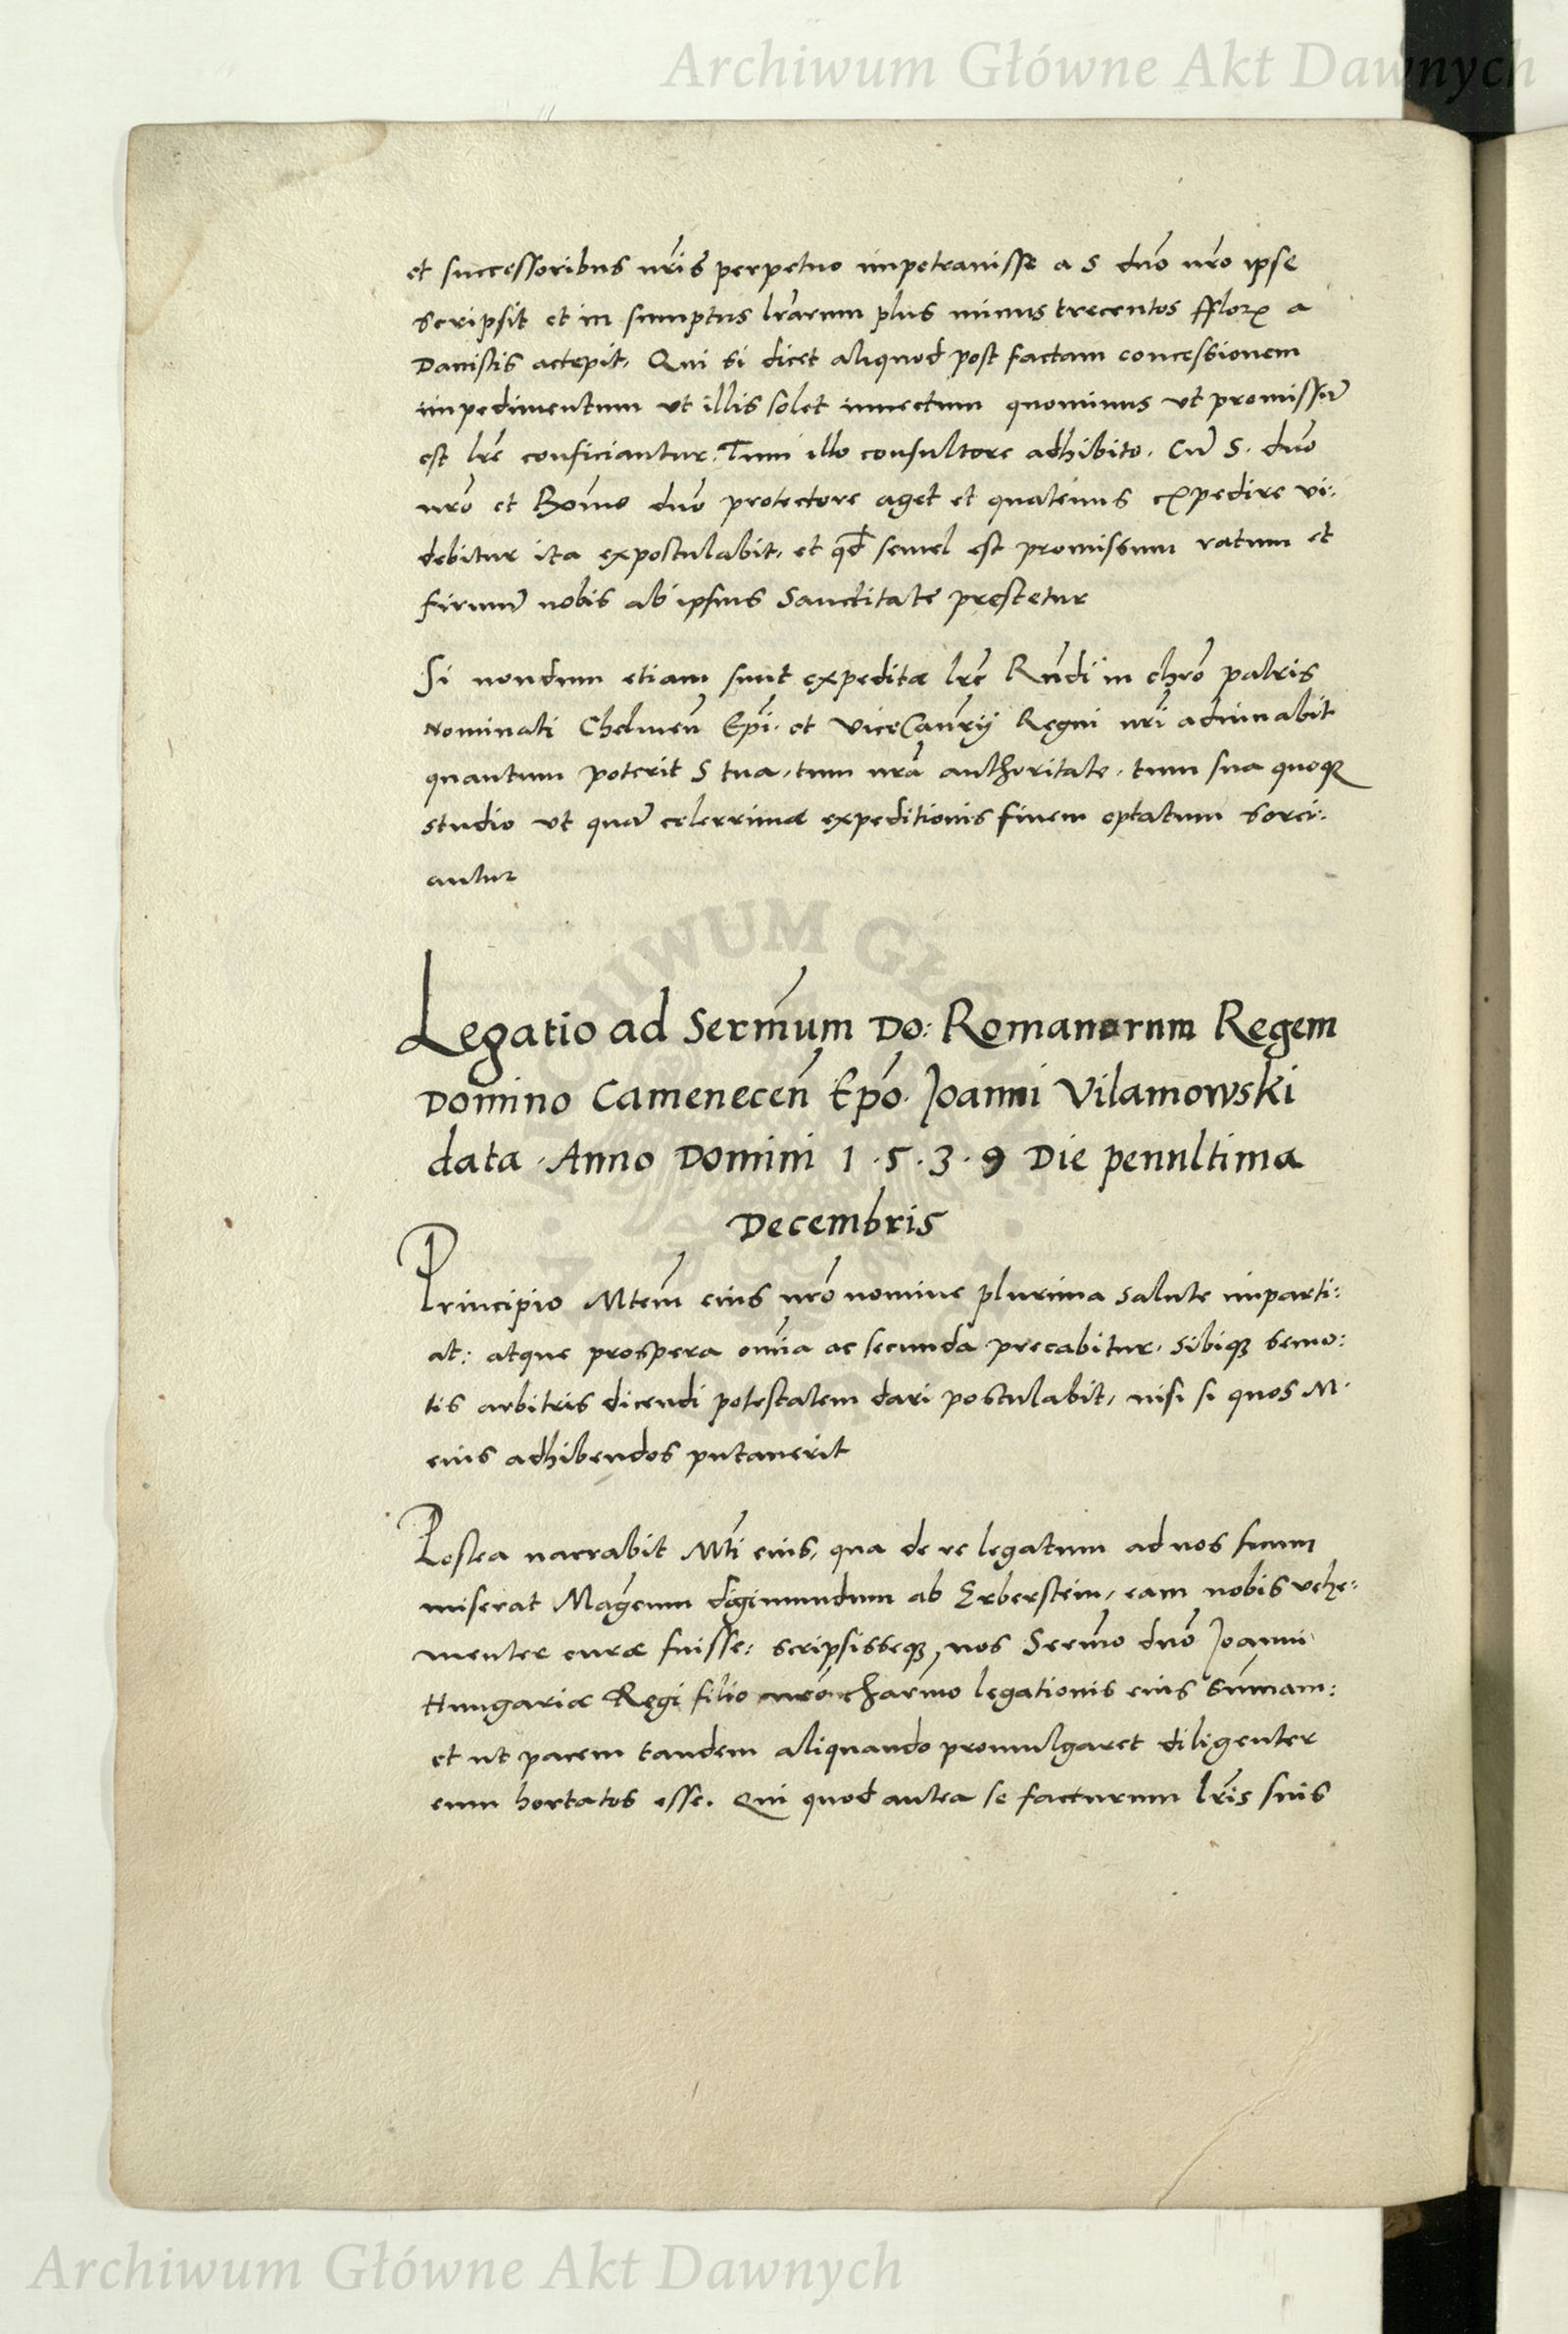 Archiwum Główne Akt Dawnych
et successoribus nr̃is perpetuo impetrauisse a S dño nr̃o ipse
scripsit et in sumptus lr̃arum plus minus trecentos fflor a
Dantistis accepit, Qui si dicet aliquod post factam concessionem
impedimentum vt illis solet iniectum quominus vt promissũ
est lr̃e conficiantur. Tum illo consultore adhibito. Cũ S. dño
nr̃o et Romo dño protectore aget et quatenus expedire vi:
debitur ita expostulabit, et qđ semel est promissum ratum et
firmũ nobis ab ipsius Sanctitate prestetur
Si nondum etiam sunt expeditæ lr̃e Rñdi in chr̃o patris
Nominati Chelmeñ Ep̃i. et ViceCanr̃ij Regni nr̃i adiuuabit
quantum poterit S tua, tum nr̃a authoritate, tum sua quoqꝫ
studio vt quã celerrimæ expeditionis finem optatum sorci:
antur
Legatio ad Serm̃um Do: Romanorum Regem
Domino Cameneceñ Ep̃o. Joanni Vilamowski
data. Anno Domini 1.5.3.9 Die penultima
Decembris
Principio Mtem̃ eius nr̃o nomine plurima salute imparti:
at: atque prospera om̃ia ac secunda precabitur, sibiqꝫ semo:
tis arbitris dicendi potestatem dari postulabit, nisi si quos M.
eius adhibendos putauerit
Postea narrabit Mt̃i eius, qua de re legatum ad nos suum
miserat Mag̃cum Sigimundum ab Erberstein, eam nobis vehe:
menter curæ fuisse: scripsisseqꝫ nos Serm̃o dño Joanni
Hungariæ Regi filio nr̃o charm̃o legationis eius sum̃am:
et ut pacem tandem aliquando promulgaret diligenter
eum hortatos esse. Qui quod antea se facturum lr̃is suis
Archiwum Główne Akt Dawnych